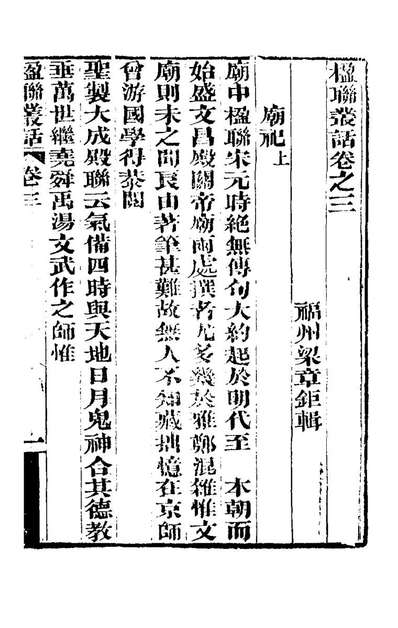 楹聯叢話卷之三
福州梁章鉅輯
廟祀上
廟中楹聯宋元時絶無傳句大約起於明代至 本朝而
始盛文昌殿關帝廟兩處撰者尤多幾於雅鄭混雜惟文
廟則未之聞良由著筆甚難故無人不知藏拙憶在京師
曾游國學得恭閱
聖製大成殿聯云氣備四時與天地日月鬼神合其德教
垂萬世繼堯舜禹湯文武作之師惟
楹聯叢話 卷三 一